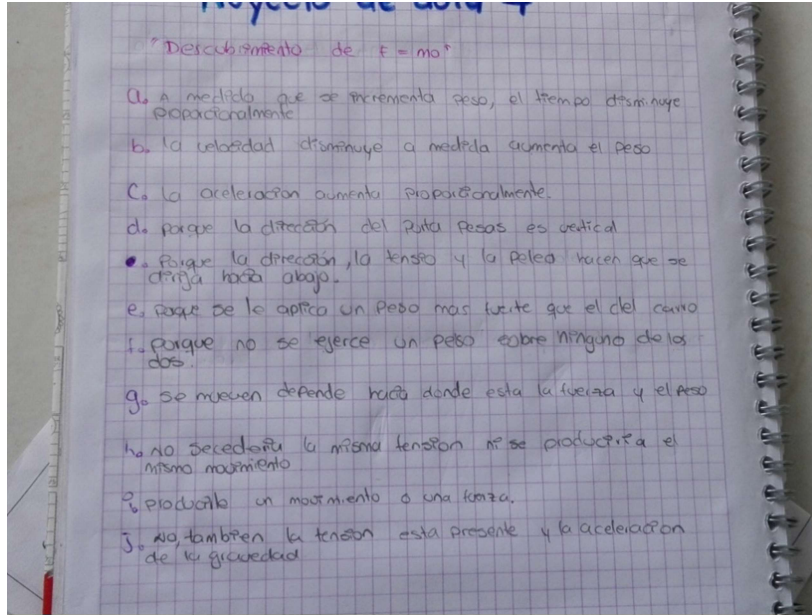 Proyecto de aula 7
"Descubrimiento de F = ma"
a. A medida que se incrementa peso, el tiempo disminuye
proporcionalmente
b. la velocidad disminuye a medida aumenta el peso
C. La aceleracion aumenta proporcionalmente.
d. porque la dirección del porta pesas es vertical
. Porque la dirección, la tensio y la polea hacen que se
dirija hacia abajo.
e. porque se le aplico un peso mas fuerte que el del carro
f. porque no se ejerce un peso sobre ninguno de los
dos.
g. se mueven depende hacia donde esta la fuerza y el peso
h. NO secederia la misma tension ni se produciria el
mismo movimiento
i. producirlo un movimiento o una fuerza.
J. NO, tambien la tension esta presente y la aceleracion
de la gravedad